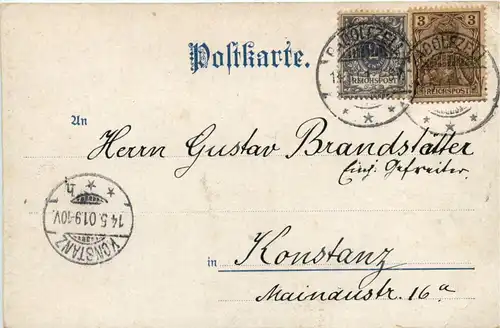 Postkarte.
RADOLFZELL
RADOLFZELL
REICHSPOST
3 3
REICHSPOST
An
Herrn Gustav Brandstätter
Einj. Gefreiter.
KONSTANZ
14.5.01.9-10V.
in Konstanz
Mainaustr. 16a